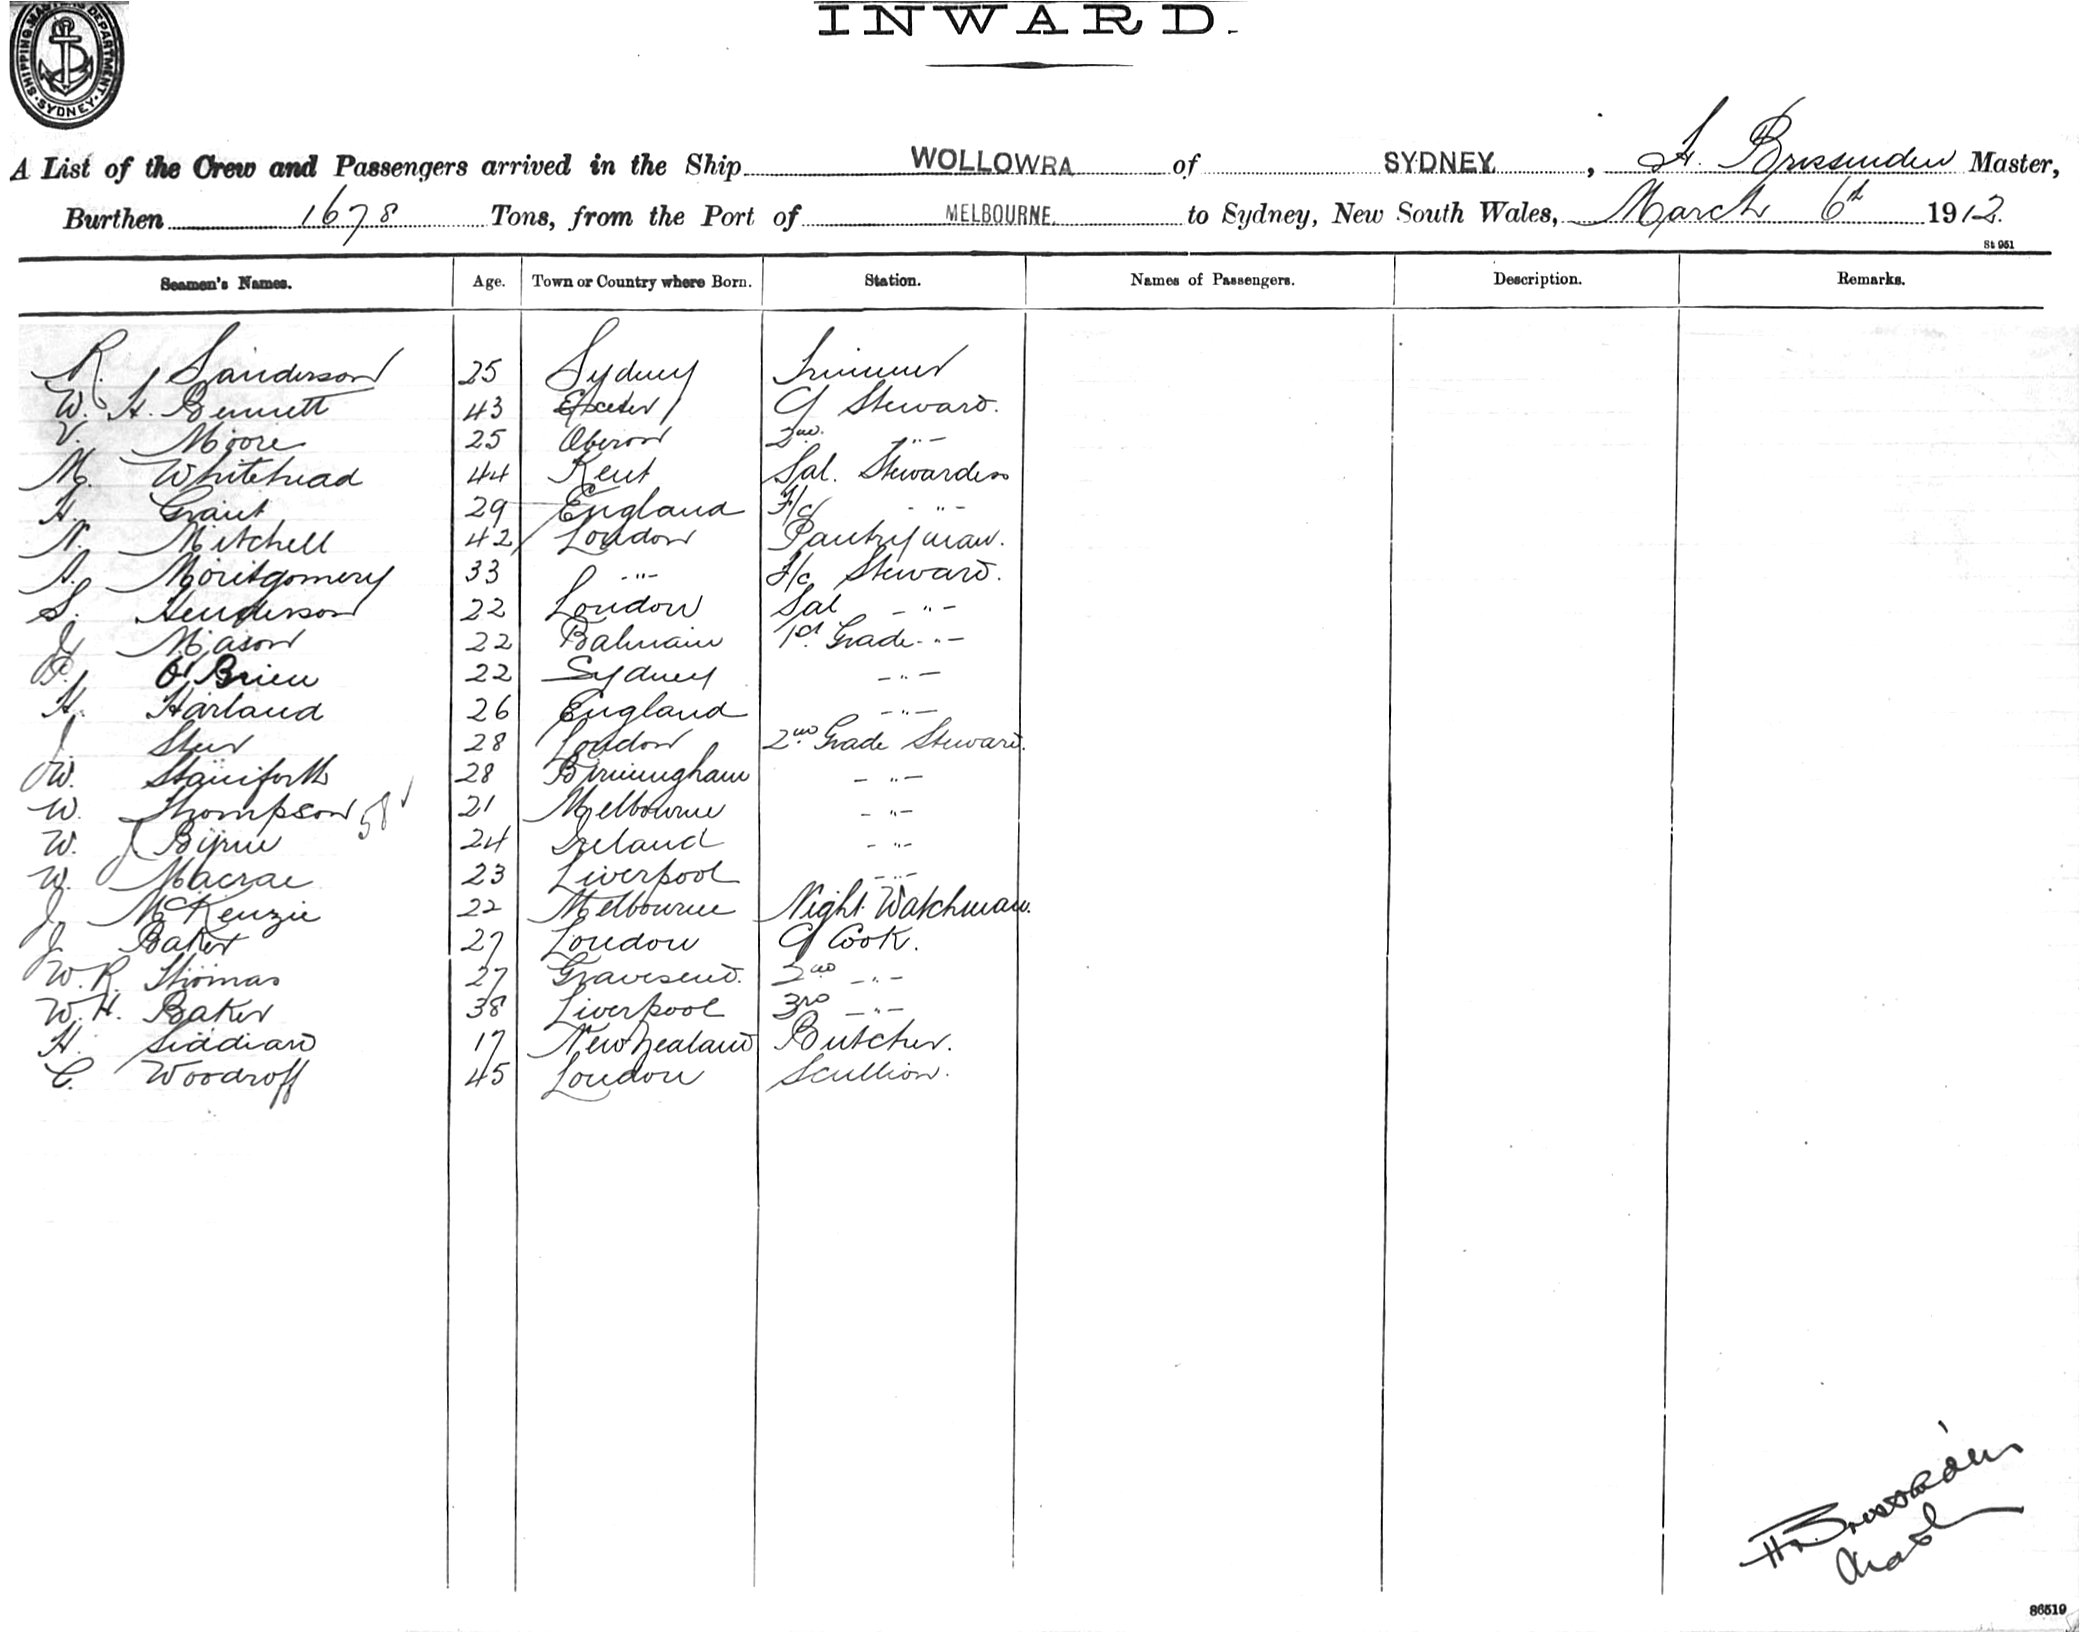 SHIPPING MASTERS DEPARTMENT SYDNEY
INWARD.
A List of the Crew and Passengers arrived in the Ship WOLLOWRA of SYDNEY, H. Brissenden Master,
Burthen 1678 Tons, from the Port of MELBOURNE to Sydney, New South Wales, March 6th 1912.
St 951
Seamen's Names. Age. Town or Country where Born. Station. Names of Passengers. Description. Remarks.
R. Sanderson 25 Sydney Trimmer
W. H. Bennett 43 Exeter C/ Steward.
V. Moore 25 Oberon 2nd. -"-
M. Whitehead 44 Kent Sal. Stewardess
H. Grant 29 England F/c -"-
N. Mitchell 42 London Pantryman.
A. Montgomery 33 -"- F/c Steward.
S. Henderson 22 London Sal -"-
J. Mason 22 Balmain 1st. Grade -"-
P. O'Brien 22 Sydney -"-
H. Harland 26 England -"-
J. 28 London 2nd Grade Steward.
W. Staniforth 28 Birmingham -"-
W. Thompson 58 21 Melbourne -"-
W. J. Byrne 24 Ireland -"-
W. Macrae 23 Liverpool -"-
J. McKenzie 22 Melbourne Night Watchman.
J. Baker 27 London C/ Cook.
W. R. Thomas 27 Gravesend. 2nd -"-
W. H. Baker 38 Liverpool 3rd -"-
H. Siddiard 17 New Zealand Butcher.
C. Woodroff 45 London Scullion.
H. Brissenden
Master
86519